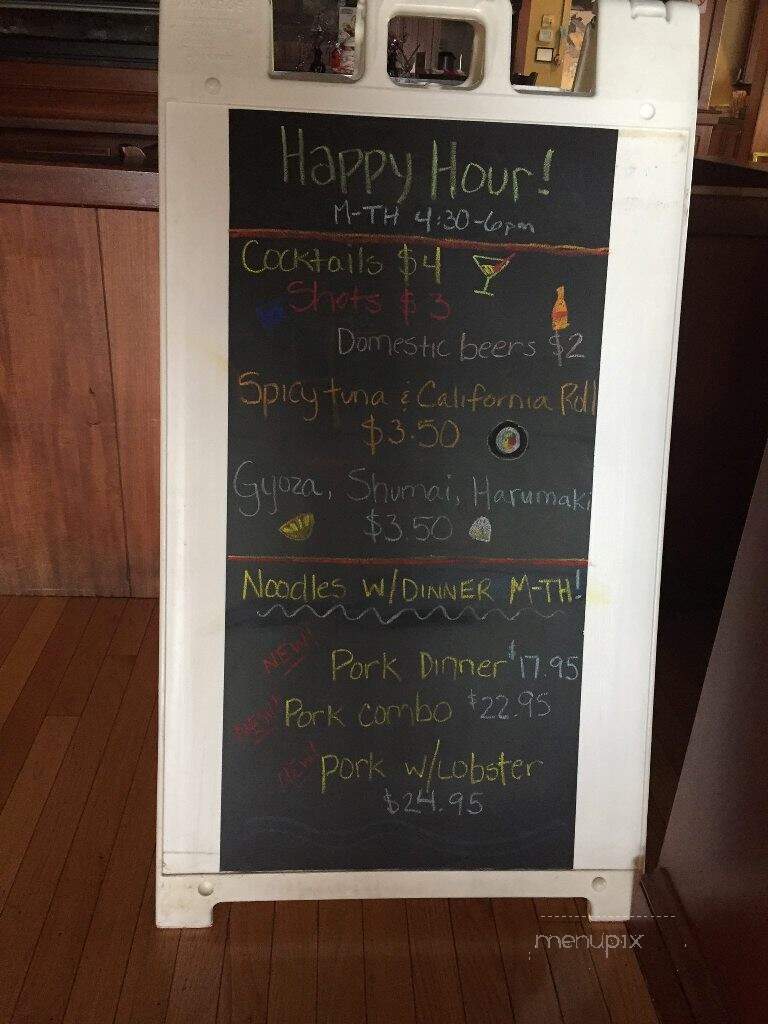 Happy Hour!
M-TH 4:30-6pm
Cocktails $4
Shots $3
Domestic beers $2
Spicy tuna & California Roll
$3.50
Gyoza, Shumai, Harumaki
$3.50
Noodles w/DINNER M-TH!
NEW! Pork Dinner $17.95
NEW! Pork combo $22.95
NEW! Pork w/Lobster
$24.95
menupix